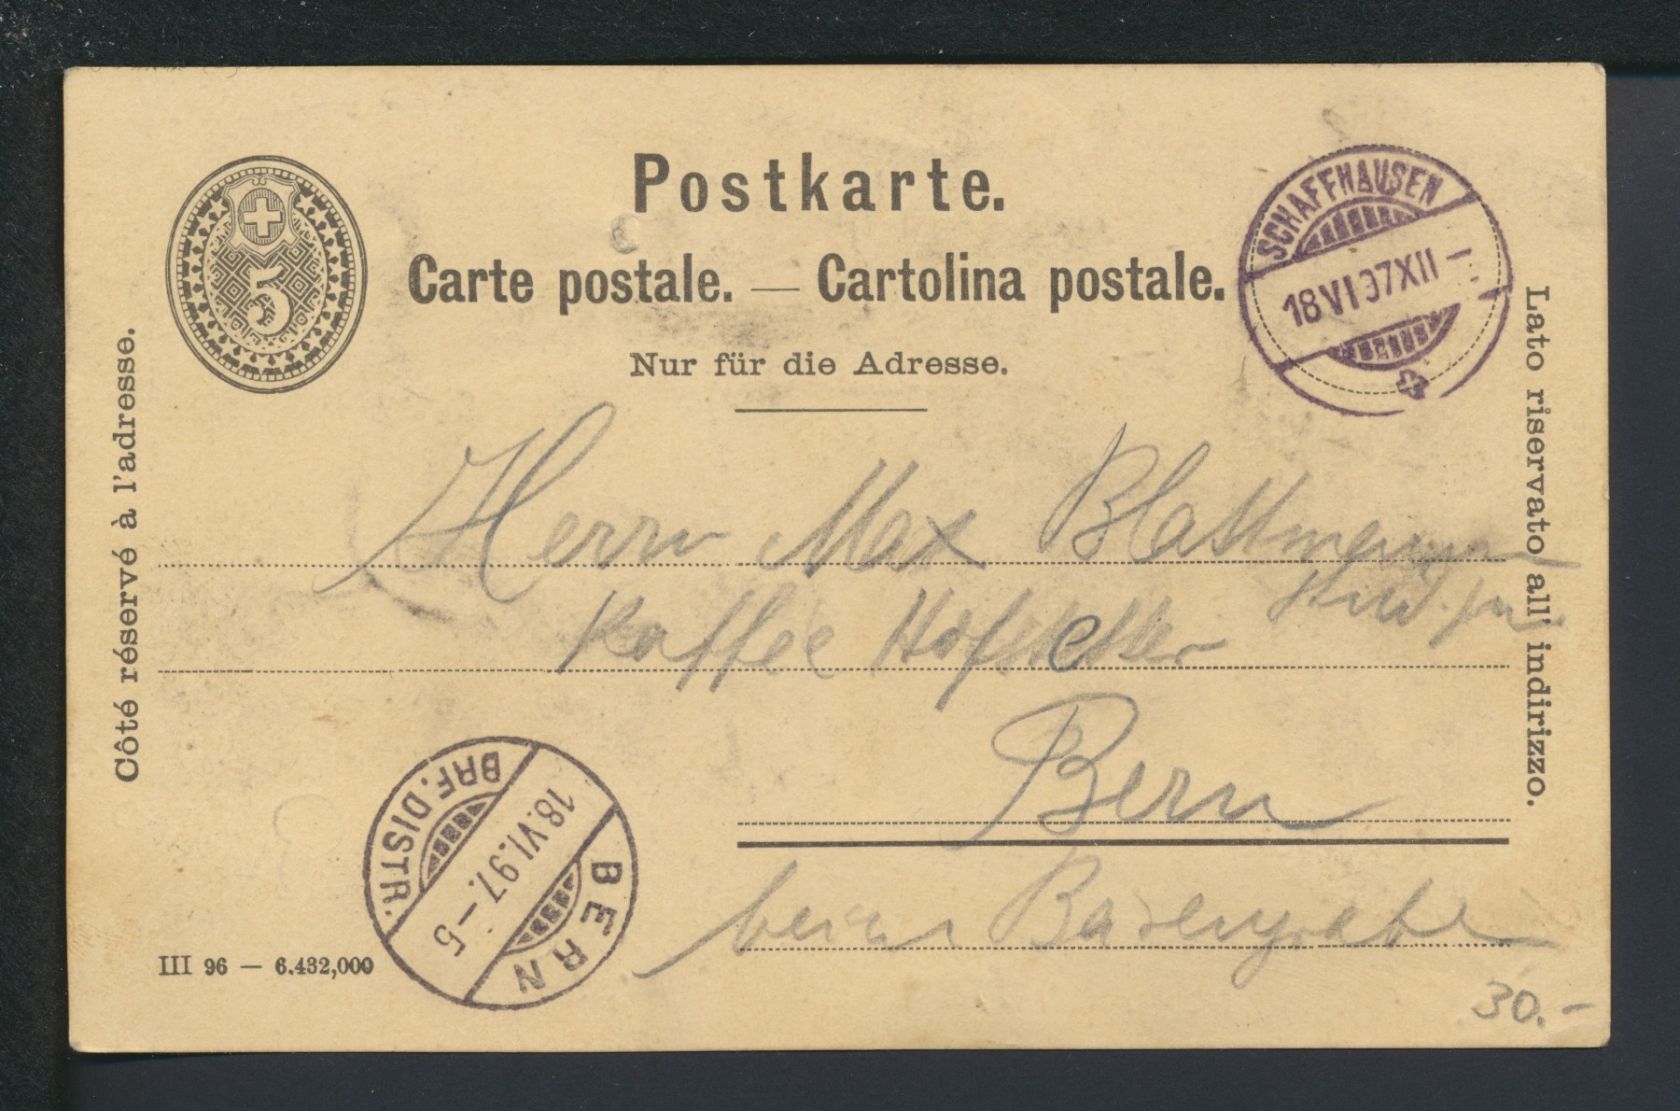 Postkarte.
Carte postale. — Cartolina postale.
Nur für die Adresse.
5
SCHAFFHAUSEN
18 VI 97 XII –
Côté réservé à l'adresse.
Lato riservato all' indirizzo.
Herrn Max Blattmann
Kaffee Hofstetter
Bern
beim Bärengrabe
BRF. DISTR.
18.VI.97.–5
BERN
III 96 — 6.432,000
30.-